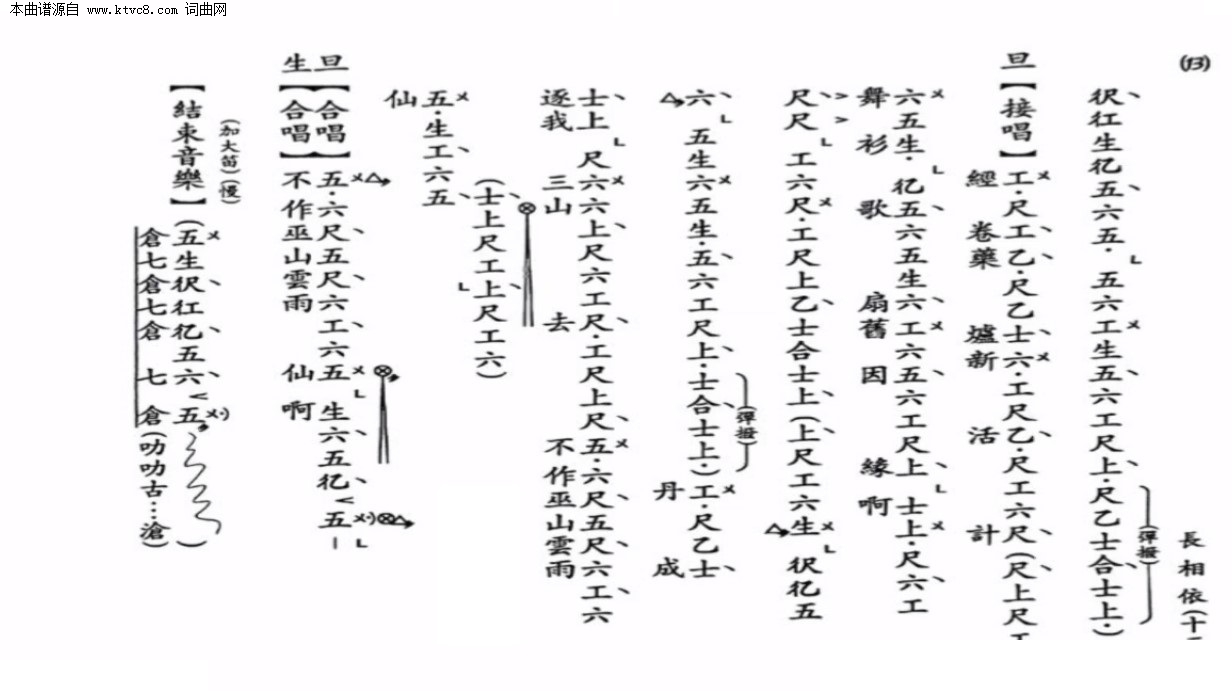 本曲谱源自 www.ktvc8.com 词曲网
(13)
長相依(十
伬仜生亿五六五·五六工生五六工尺上·尺乙士合士上·)
(彈撥)
旦【接唱】工·尺工乙·尺乙士六·工尺乙·尺工六尺(尺上尺工
經卷藥爐新活計
六五生·亿五六五生六工六五六工尺上士上·尺六工
舞衫歌扇舊因緣啊
尺尺工六尺·工尺上乙士合士上(上尺工六生伬亿五
六五生六五生·五六工尺上·士合士上·)工·尺乙士
(彈撥)
丹成
士上尺六六上尺六工尺·工尺上尺五·六尺五尺六工六
逐我三山去不作巫山雲雨
(士上尺工上尺工六)
五·生工六五
仙
旦【合唱】五·六尺五尺六工六五生六五亿五
生【合唱】不作巫山雲雨仙啊
(加大笛)(慢)
【結束音樂】(五生伬仜亿五六五)
倉七倉七倉七倉(叻叻古…滄)